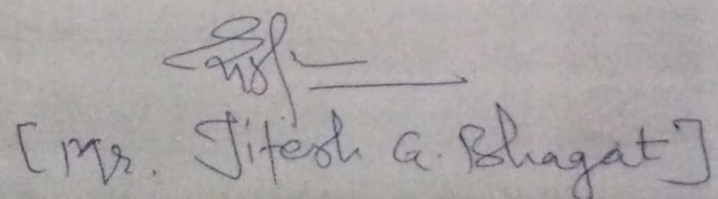 [Mr. Jitesh G. Bhagat]